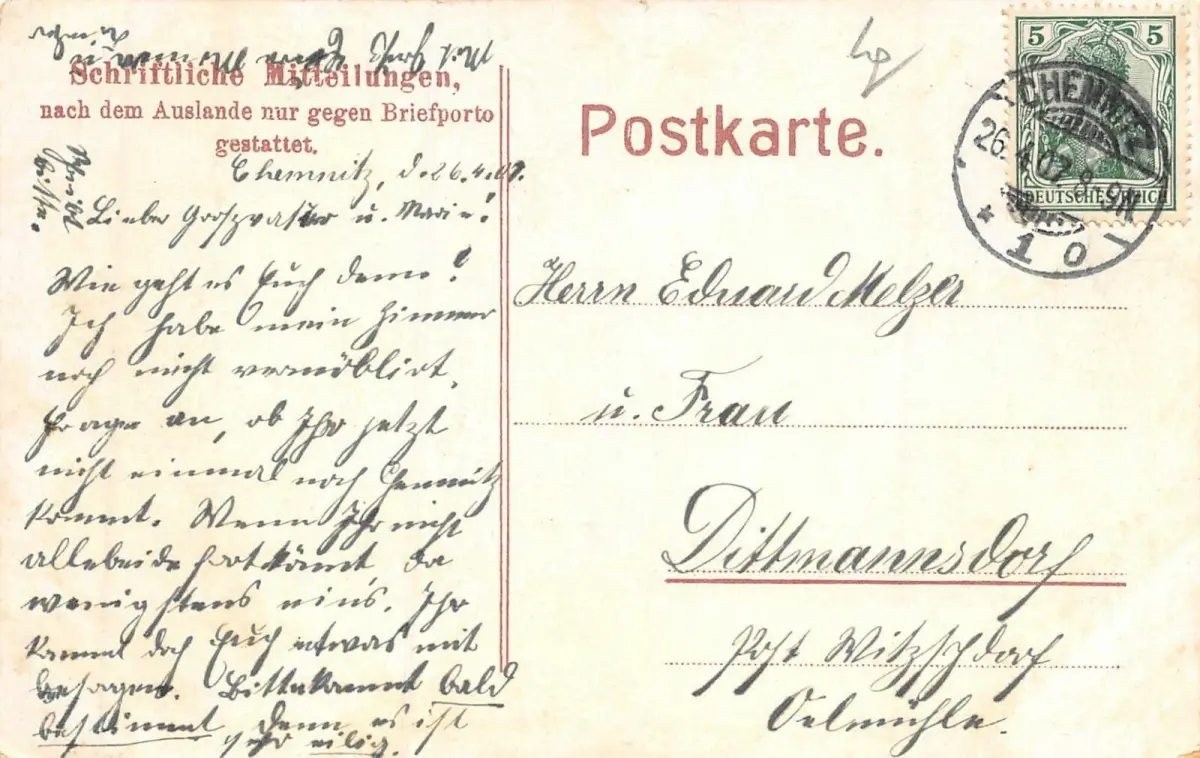 Schriftliche Mitteilungen,
nach dem Auslande nur gegen Briefporto
gestattet.
Chemnitz, d. 26.4.07.
Lieber Groszvater u. Marie!
Wie geht es Euch denn?
Ich habe mein Zimmer
noch nicht vermöblirt,
frage an, ob Ihr jetzt
nicht einmal nach Chemnitz
kommt. Wenn Ihr nicht
allebeide fortkönnt da
wenigstens eins. Ihr
kannt doch Euch etwas mit
besorgen. Bitte kommt bald
bestimmt, denn es ist
sehr eilig.
Postkarte.
5 5
DEUTSCHES REICH
CHEMNITZ
26.4.07. 8-9N.
* 10
Herrn Eduard Melzer
u. Frau
Dittmannsdorf
Post Witzschdorf
Oelmühle.